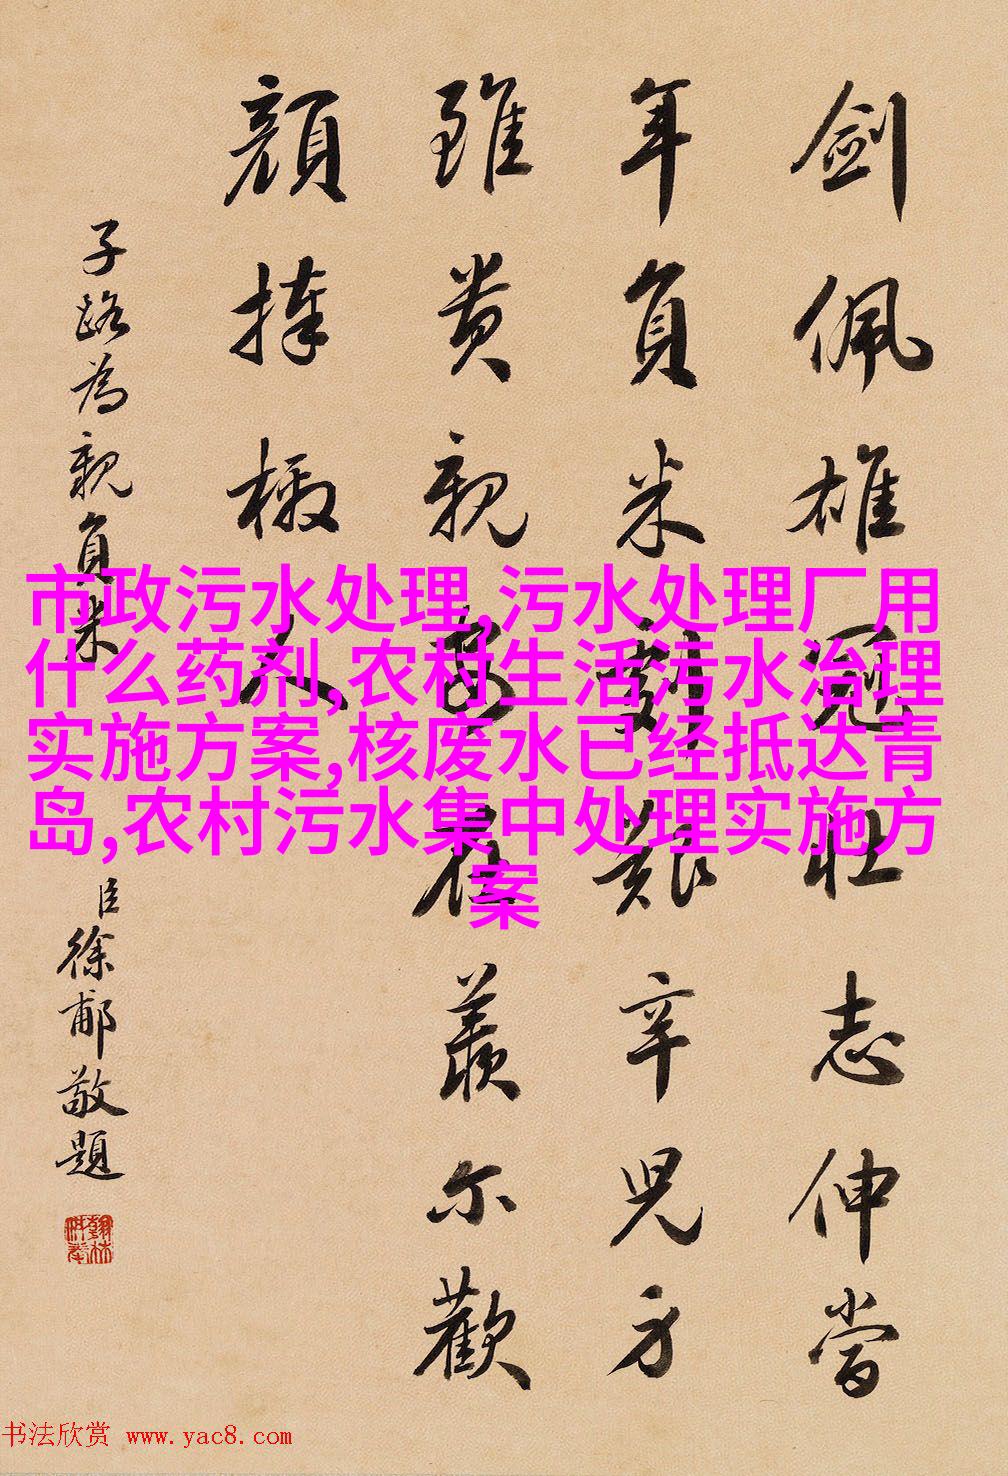 劍佩雄冠壯志伸當
年負米艱辛兒方
雖貴親安在羨爾歡
顏捧檄人
子路為親負米
臣徐郙敬題
市政污水处理,污水处理厂用
什么药剂,农村生活污水治理
实施方案,核废水已经抵达青
岛,农村污水集中处理实施方
案
书法欣赏 www.yac8.com